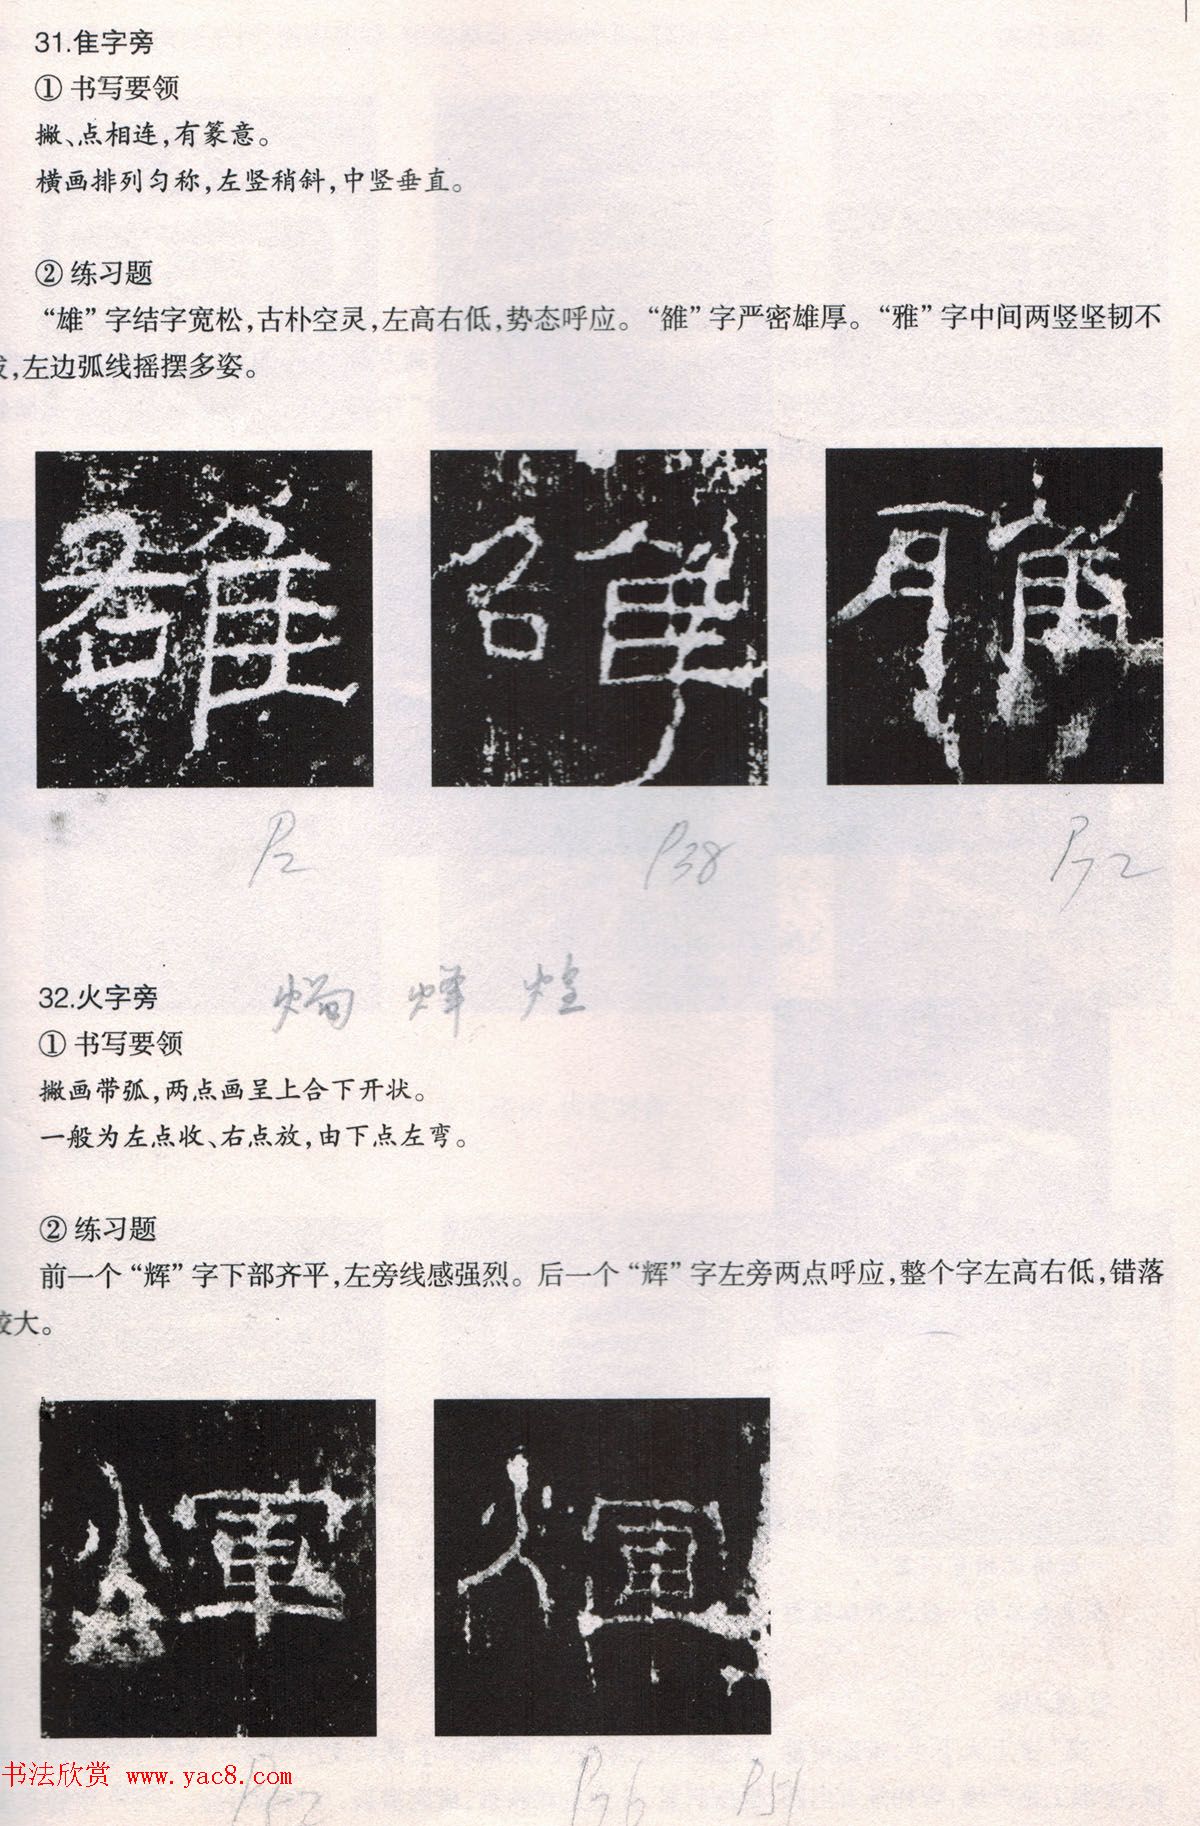 31.隹字旁
① 书写要领
撇、点相连，有篆意。
横画排列匀称，左竖稍斜，中竖垂直。
② 练习题
“雄”字结字宽松，古朴空灵，左高右低，势态呼应。“雒”字严密雄厚。“雅”字中间两竖坚韧不
拔，左边弧线摇摆多姿。
雄
雅
P2
P38
P72
32.火字旁
烽 煌
① 书写要领
撇画带弧，两点画呈上合下开状。
一般为左点收、右点放，由下点左弯。
② 练习题
前一个“辉”字下部齐平，左旁线感强烈。后一个“辉”字左旁两点呼应，整个字左高右低，错落
较大。
煇 煇
书法欣赏 www.yac8.com
P52
P76 P51